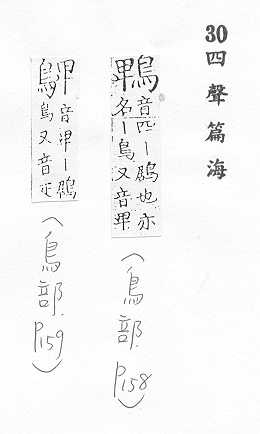 30四聲篇海
鵯
音匹一鶋也亦
名一鳥又音卑
(鳥部.P.158)
音卑一鶋
鳥又音疋
(鳥部.P.159)